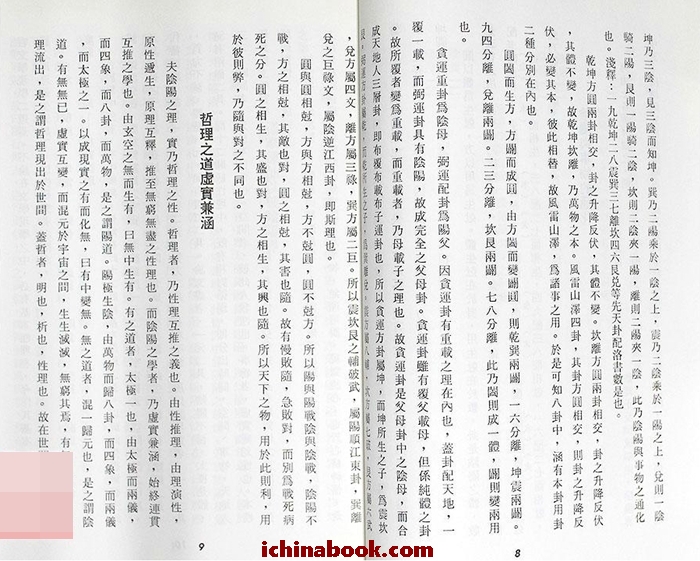 坤乃三陰，見三陰而知坤。巽乃二陽乘於一陰之上，震乃二陰乘於一陽之上，兌則一陰
騎二陽，艮則一陽騎二陰，坎則二陰夾一陽，離則二陽夾一陰，此乃陰陽與事物之通化
也。淺釋：一九乾坤二八震巽三七離坎四六艮兌等先天卦配洛書數是也。
乾坤方圓兩卦相交，卦之升降反伏，其體不變。坎離方圓兩卦相交，卦之升降反伏
，其體不變，故乾坤坎離，乃萬物之本。風雷山澤四卦，其卦方圓相交，則卦之升降反
伏，必變其本，彼此相替，故風雷山澤，爲諸事之用。於是可知八卦中，涵有本卦用卦
二種分別在內也。
圓闔而生方，方闢而成圓，由方闔而變闢圓，則乾巽兩闢，一六分離，坤震兩闢。
九四分離，兌離兩闢。二三分離，坎艮兩闢。七八分離，此乃闔則成一體，闢則變兩用
也。
貪運重卦爲陰母，弼運配卦爲陽父。因貪運卦有重載之理在內也，蓋卦配天地，一
覆一載，而弼運卦具有陰陽，故成完全之父母卦。貪運卦雖有覆父載母，但係純體之卦
。故所覆者變爲重載，而重載者，乃母載子之理也。故貪運卦是父母卦中之陰母，而合
成天地人三層卦，即布覆布載布子運卦也，所以貪運方卦屬坤，而坤所生之子，爲震坎
方屬七破，艮方屬六武
8
，兌方屬四文，離方屬三祿，巽方屬二巨。所以震坎艮之輔破武，屬陽順江東卦，巽離
兌之巨祿文，屬陰逆江西卦，即斯理也。
圓與圓相尅，方與方相尅，方不尅圓，圓不尅方。所以陽與陽戰陰與陰戰，陰陽不
戰，方之相尅，其敵也對，圓之相尅，其害也隨。故有慢敗隨，急敗對，而別爲戰死病
死之分。圓之相生，其盛也對，方之相生，其興也隨。所以天下之物，用於此則利，用
於彼則弊，乃隨與對之不同也。
哲理之道虛實兼涵
夫陰陽之理，實乃哲理之性。哲理者，乃性理互推之義也。由性推理，由理演性，
原性遞生，原理互釋，推至無窮無盡之性理也。而陰陽之學者，乃虛實兼涵，始終連貫
互推之學也。由玄空之無而生有，曰無中生有。有之道者，太極一也，由太極而兩儀，
而四象，而八卦，而萬物，是之謂陽道。陽極生陰，由萬物而歸八卦，而四象，而兩儀
，而太極之一。以成現實之有而化無，曰有中變無。無之道者，混一歸元也，是之謂陰
道。有無無已，虛實互變，而混元於宇宙之間，生生滅滅，無窮其焉，有
理流出，是之謂哲理現出於世間。蓋哲者，明也，析也，性理也。故在世
9
ichinabook.com